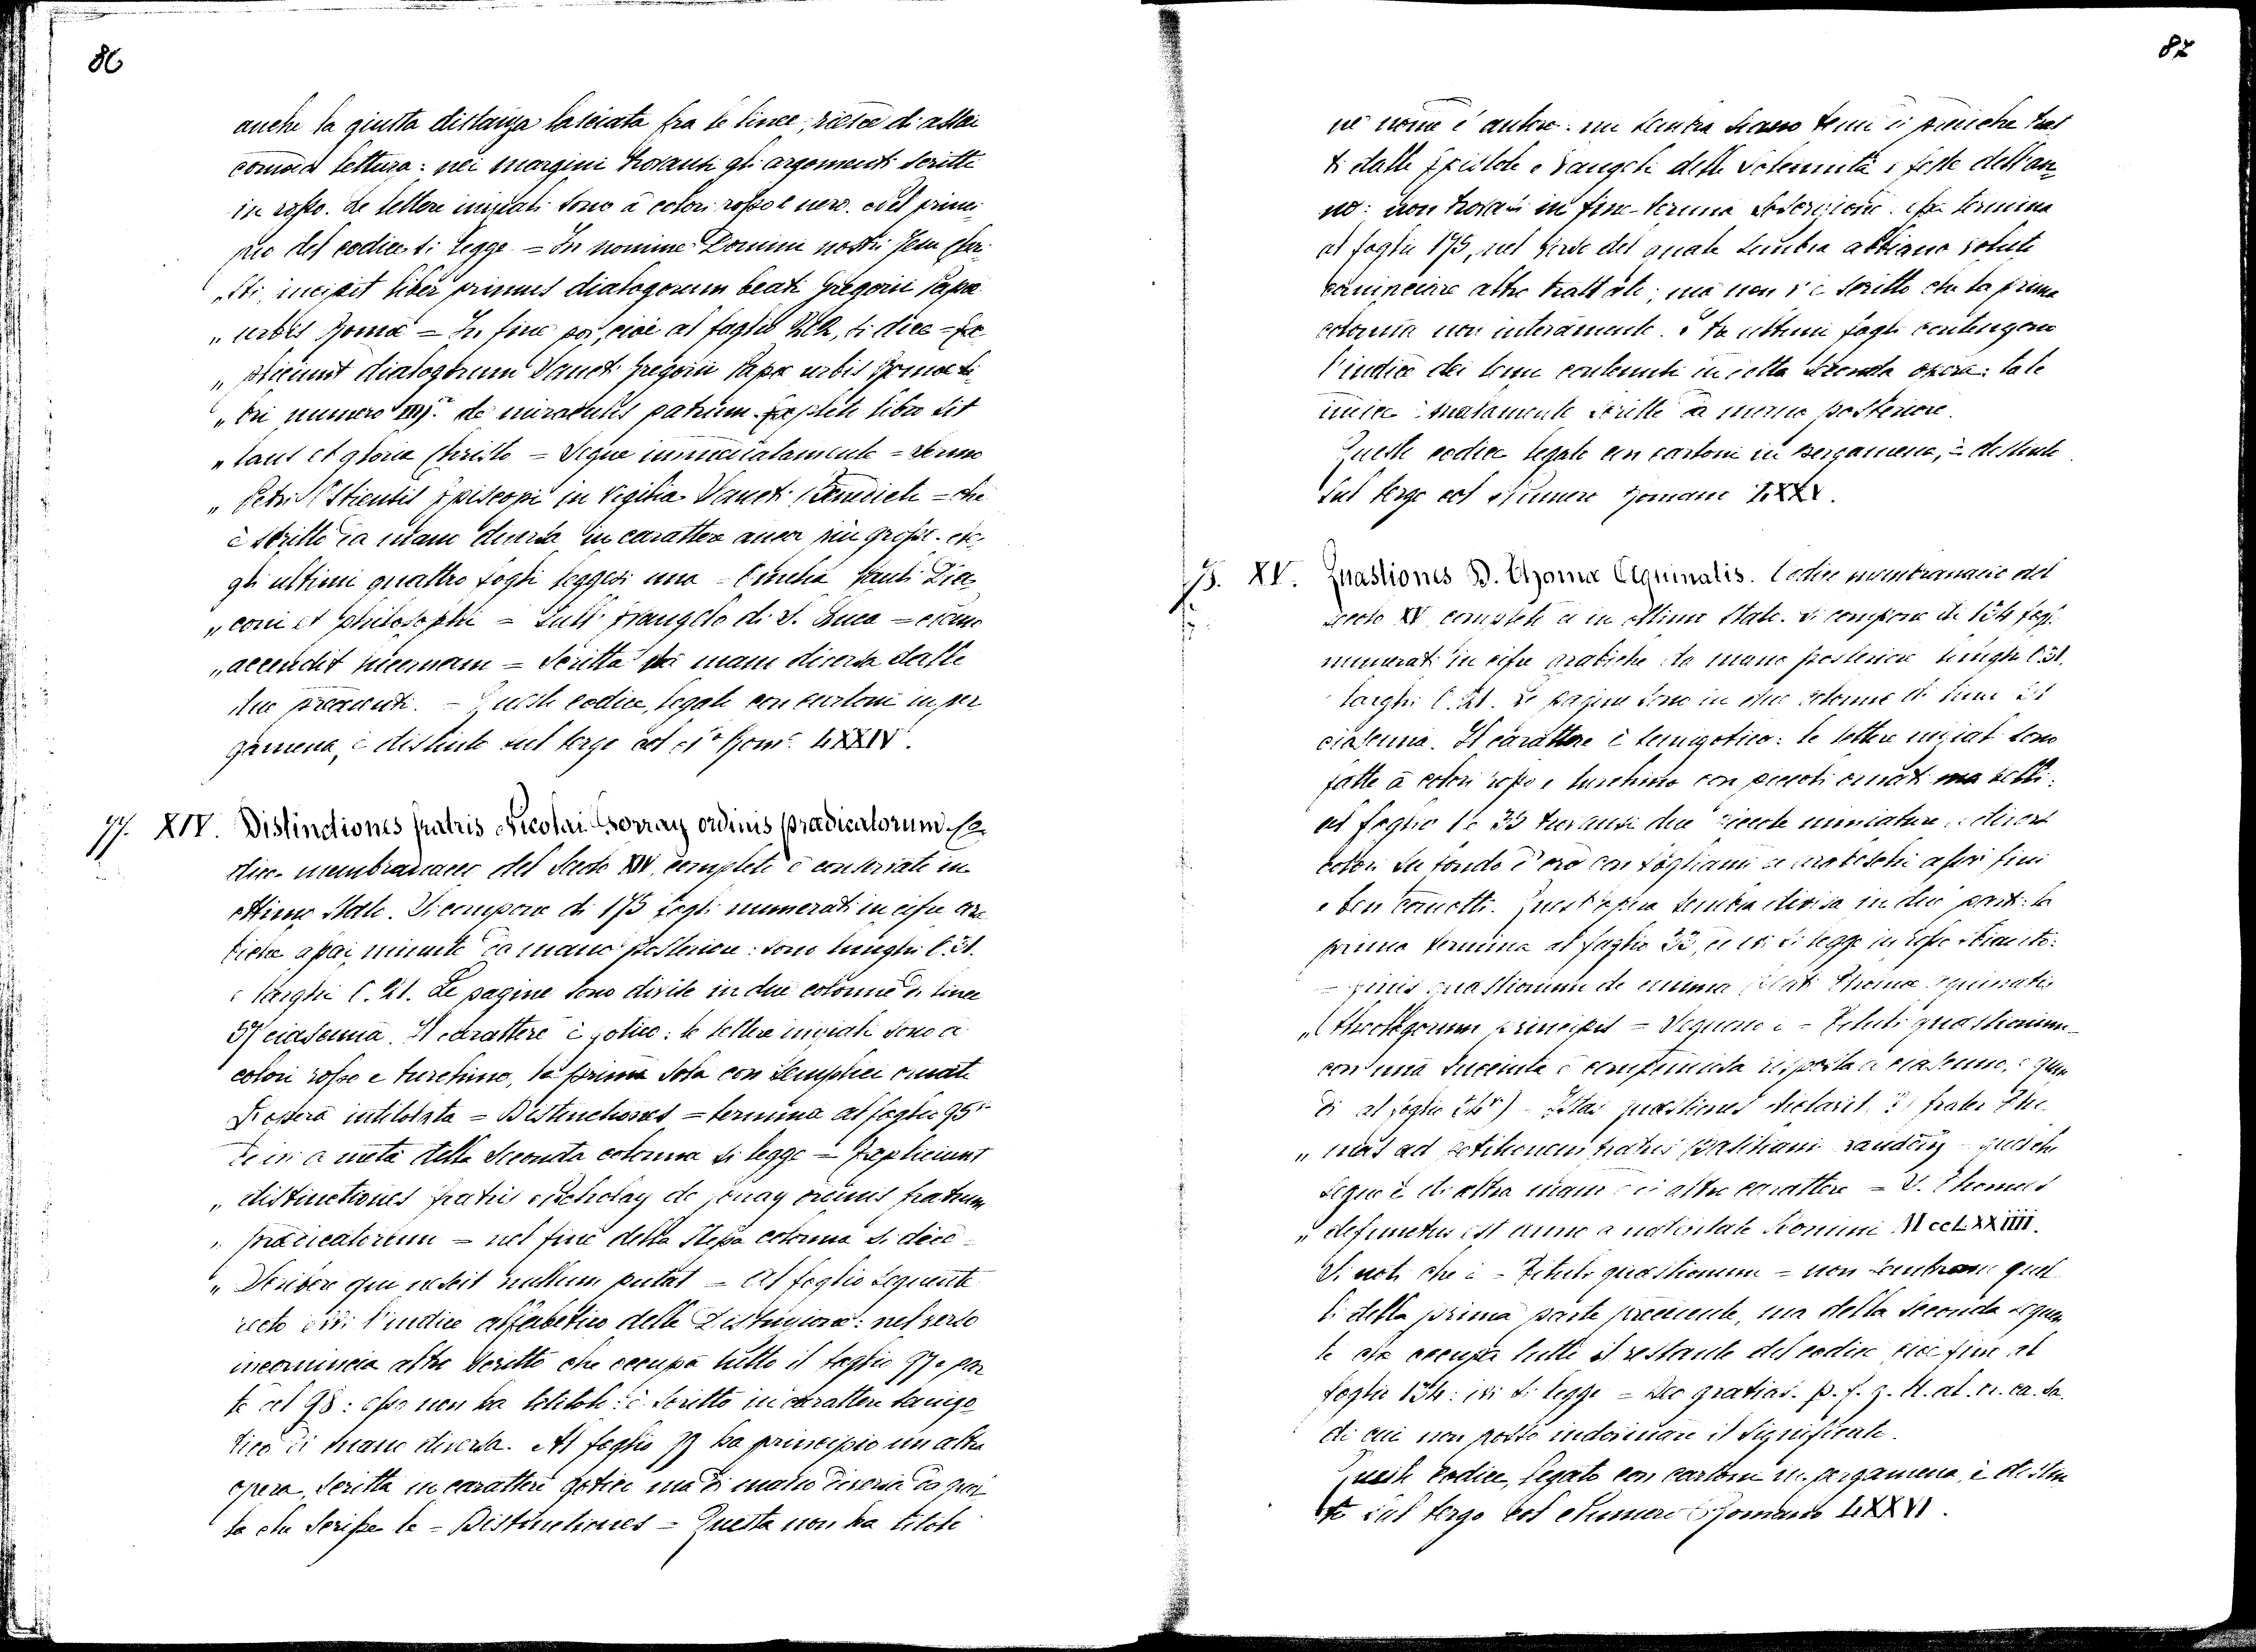 86
anche la giusta distanza lasciata fra le linee, riesce di assai
comoda lettura: nei margini trovansi gli argomenti scritti
in rosso. Le lettere iniziali sono a colori rosso e nero. Nel princi-
pio del codice si legge = In nomine Domini nostri Jesu Chri-
„ sti, incipit liber primus dialogorum beati Gregorii Papæ
„ urbis Romæ = In fine poi, cioè al foglio 212, si dice = Ex-
„ pliciunt dialogorum Sancti Gregorii Papæ urbis Romæ li-
„ bri numero IIIJ.or de miraculis patrum. Explicito libro sit
„ laus et gloria Christo = Segue immediatamente = Sermo
„ Petri Ostiensis Episcopi in vigilia Sancti Benedicti = che
è scritto da mano diversa in carattere ancor più grosso. Ne-
gli ultimi quattro fogli leggesi una = Omelia Pauli Dia-
„ coni et philosophi = sull' Evangelo di S. Luca = Nemo
„ accendit lucernam = scritta da mano diversa dalle
due precedenti. – Questo codice, legato con cartoni in per-
gamena, è distinto sul tergo col N.o Rom.o LXXIV.
77. XIV. Distinctiones fratris Nicolai Gorray ordinis prædicatorum. Co-
dice membranaceo del Secolo XIV, completo e conservato in
ottimo stato. Si compone di 175 fogli numerati in cifre ara-
biche assai minute da mano posteriore: sono lunghi C. 31.
e larghi C. 21. Le pagine sono divise in due colonne di linee
57 ciascuna. Il carattere è gotico: le lettere iniziali sono a
colori rosso e turchino, la prima sola con semplici ornati.
L'opera intitolata = Distinctiones = termina al foglio 95.
Ivi a metà della seconda colonna si legge = Expliciunt
„ distinctiones fratris Nicholay de Gorray ordinis fratrum
„ prædicatorum = nel fine della stessa colonna si dice =
„ Scribere qui nescit nullum putat = Al foglio seguente
recto evvi l'indice alfabetico delle Distinzioni: nel verso
incomincia altro scritto che occupa tutto il foglio 97 e par-
te del 98: esso non ha titolo: è scritto in carattere semigo-
tico di mano diversa. Al foglio 99 ha principio un altra
opera, scritta in carattere gotico ma di mano diversa da quel-
la che scrisse le = Distinctiones = Questa non ha titolo
87
nè nome d'autore: mi sembra siano temi di prediche trat-
ti dalle Epistole e Vangeli delle solennità e feste dell'an-
no: non trovasi in fine veruna soscrizione. Essa termina
al foglio 175, nel verso del quale sembra abbiano voluto
cominciare altro trattato; ma non v'è scritto che la prima
colonna non interamente. I tre ultimi fogli contengono
l'indice dei temi contenuti in detta seconda opera: tale
indice è malamente scritto da mano posteriore.
Questo codice legato con cartoni in pergamena, è distinto
sul tergo col Numero Romano LXXV.
78. XV. Quæstiones D. Thomæ Aquinatis. Codice membranaceo del
secolo XV, completo ed in ottimo stato. Si compone di 134 fogli
numerati in cifre arabiche da mano posteriore lunghi C. 31.
larghi C. 21. Le pagine sono in due colonne di linee 51
ciascuna. Il carattere è semigotico: le lettere iniziali sono
fatte a colori rosso e turchino con piccoli ornati ma belli:
al foglio 1 e 33 trovansi due piccole miniature a diversi
colori su fondo d'oro con fogliami ed arabeschi assai fini
e ben condotti. Quest'opera sembra divisa in due parti: la
prima termina al foglio 33, ed ivi si legge in rosso sbiadito:
= Finis quæstionum de anima Beati Thomæ Aquinatis
„ theologorum principis = Seguono i = Tituli quæstionum =
con una succinta e compendiosa risposta a ciascuno, e quin-
di al foglio 34 = Istas quæstiones dictavit frater Tho-
„ mas ad petitionem fratris Bassiani Laudens = quel che
segue è di altra mano e di altro carattere = S. Thomas
„ defunctus est anno a nativitate Domini MCCLXXIIII.
Si noti che i = Tituli quæstionum = non sembrano quel-
li della prima parte precedente, ma della seconda seguen-
te che occupa tutto il restante del codice cioè fino al
foglio 134: ivi si legge = Deo gratias. p. f. g. H. al. n. ca. sa.
di cui non posso indovinare il significato.
Questo codice, legato con cartoni in pergamena, è distin-
to sul tergo col Numero Romano LXXVI.